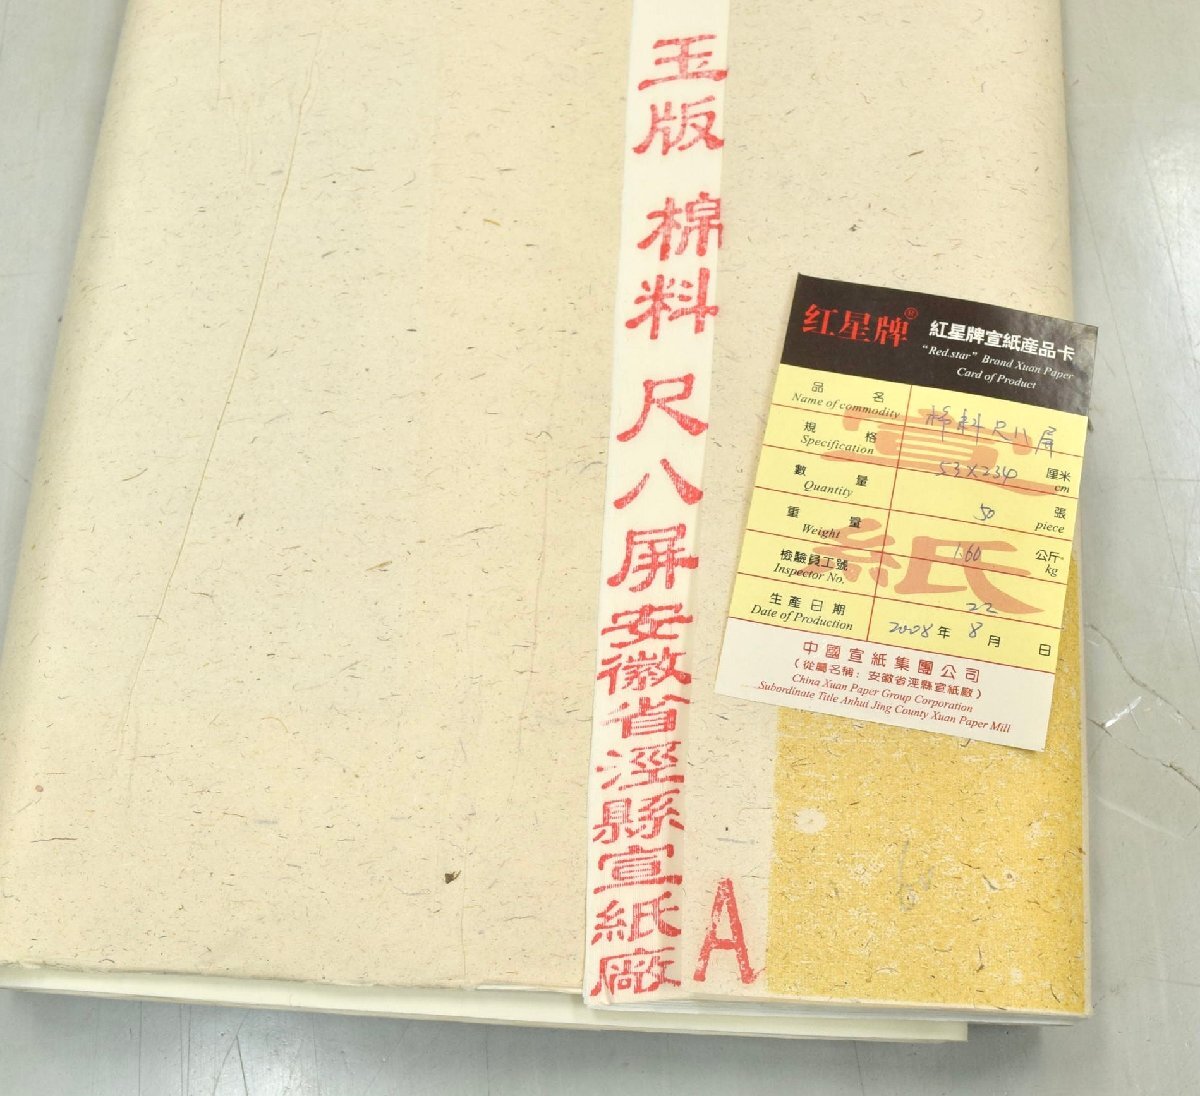 玉版 棉料 尺八屏 安徽省涇縣宣紙廠
A
红星牌®
紅星牌宣紙産品卡
"Red.star" Brand Xuan Paper
Card of Product
品 名 棉料尺八屏
Name of commodity
規 格 53×234 厘米
Specification cm
數 量 50 張
Quantity piece
重 量 1.60 公斤
Weight kg
檢驗員工號 22
Inspector No.
生產日期 2008年 8月 日
Date of Production
宣紙
中國宣紙集團公司
(從屬名稱:安徽省涇縣宣紙廠)
China Xuan Paper Group Corporation
Subordinate Title Anhui Jing County Xuan Paper Mill